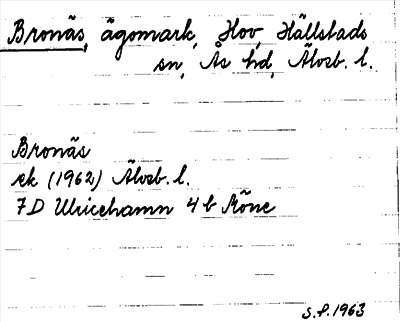 Bronäs, ägomark, Hov, Hällstads
sn, Ås hd, Älvsb. l.
Bronäs
ek (1962) Älvsb. l.
7D Ulricehamn 4 b Möne
S.P. 1963